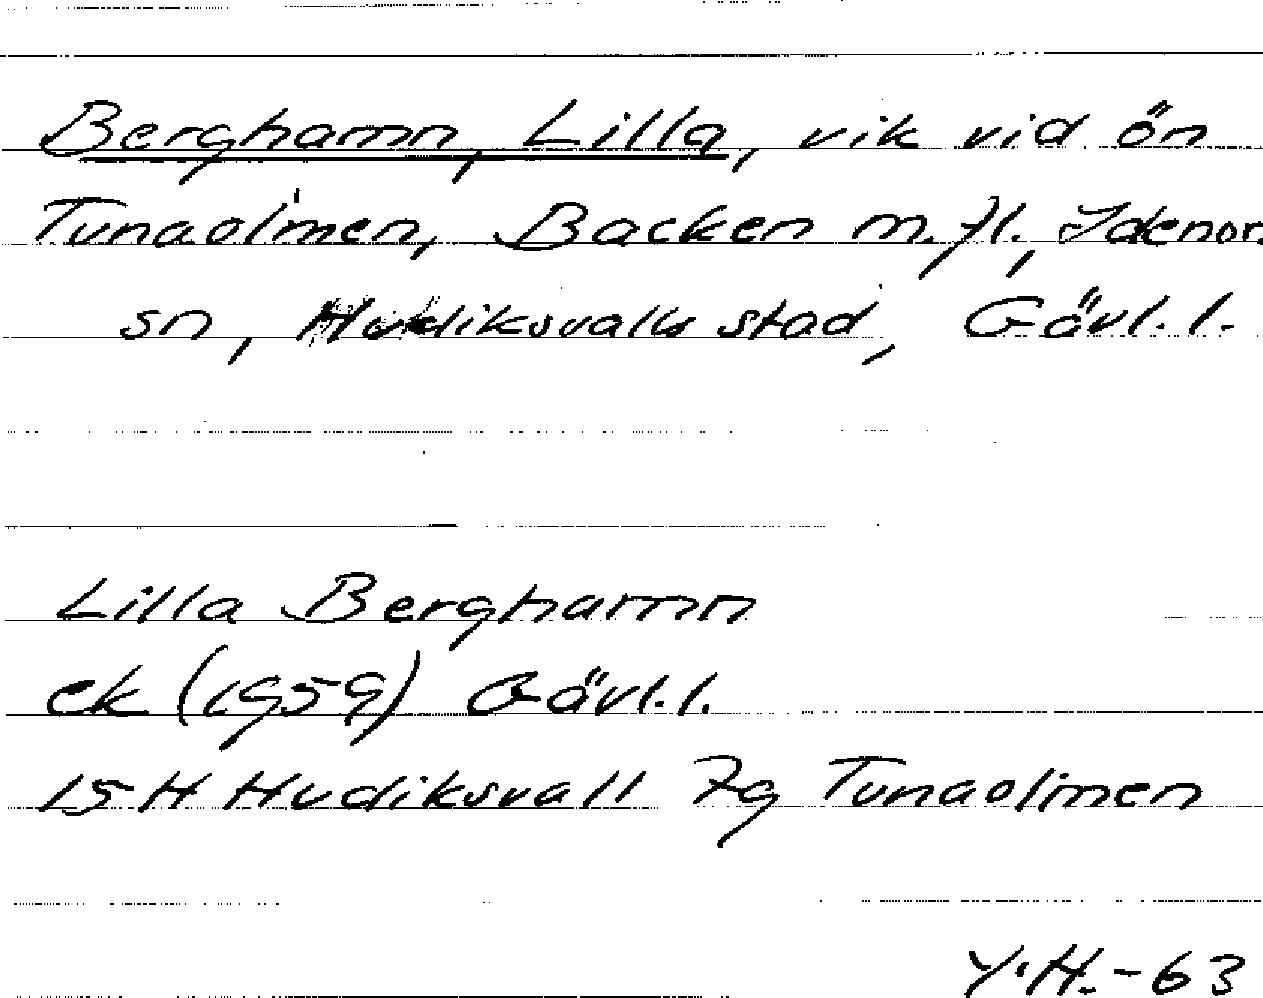 Berghamn, Lilla, vik vid ön
Tunaolmen, Backen m.fl., Idenor.
sn, Hudiksvalls stad, Gävl.l.
Lilla Berghamn
ek (1959) Gävl.l.
15 H Hudiksvall 7g Tunaolmen
Y.H.-63